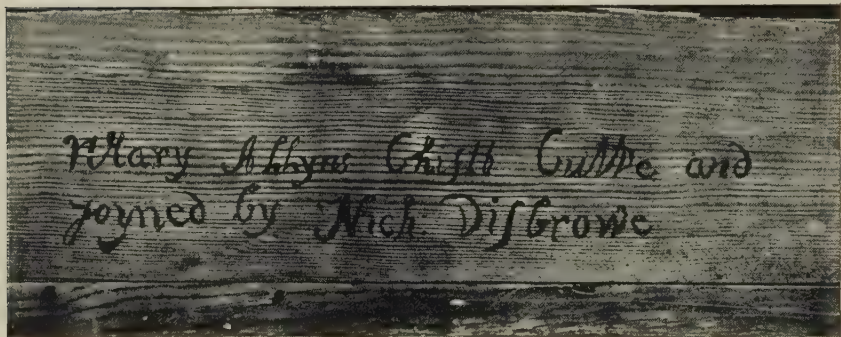 Mary Allyns Chiſtt Cutte and
Joyned by Nich: Diſbrowe